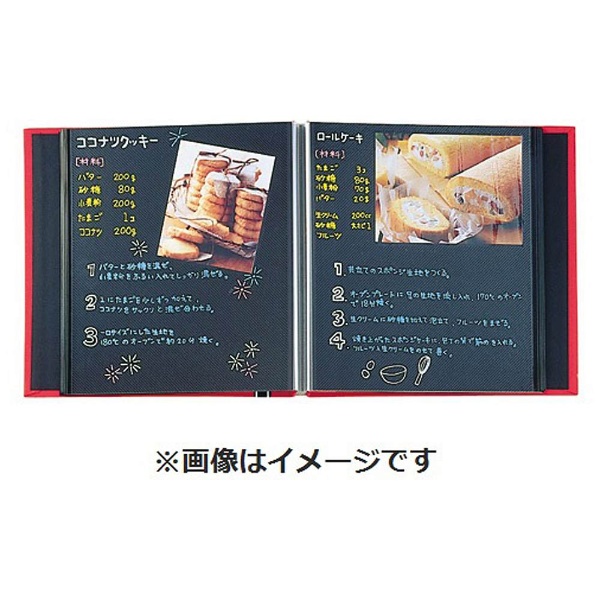 ココナツクッキー
[材料]
バター 200g
砂糖 80g
小麦粉 200g
たまご 1コ
ココナツ 200g
1 バターと砂糖を混ぜ、
小麦粉をふるい入れてしっかり混ぜる。
2 1にたまごを少しずつ加えて、
ココナツをサックリと混ぜ合わせる。
3 一口サイズにした生地を
180℃のオーブンで約20分焼く。
ロールケーキ
[材料]
たまご 3コ
砂糖 80g
小麦粉 70g
バター 20g
生クリーム 200cc
砂糖 大さじ1
フルーツ
1 共立てのスポンジ生地をつくる。
2 オーブンプレートに1の生地を流し入れ、170℃のオーブン
で18分焼く。
3 生クリームに砂糖を加えて泡立て、フルーツをまぜる。
4 焼き上がったスポンジケーキに、包丁の背で筋を入れる。
フルーツ入生クリームをのせて巻く。
※画像はイメージです